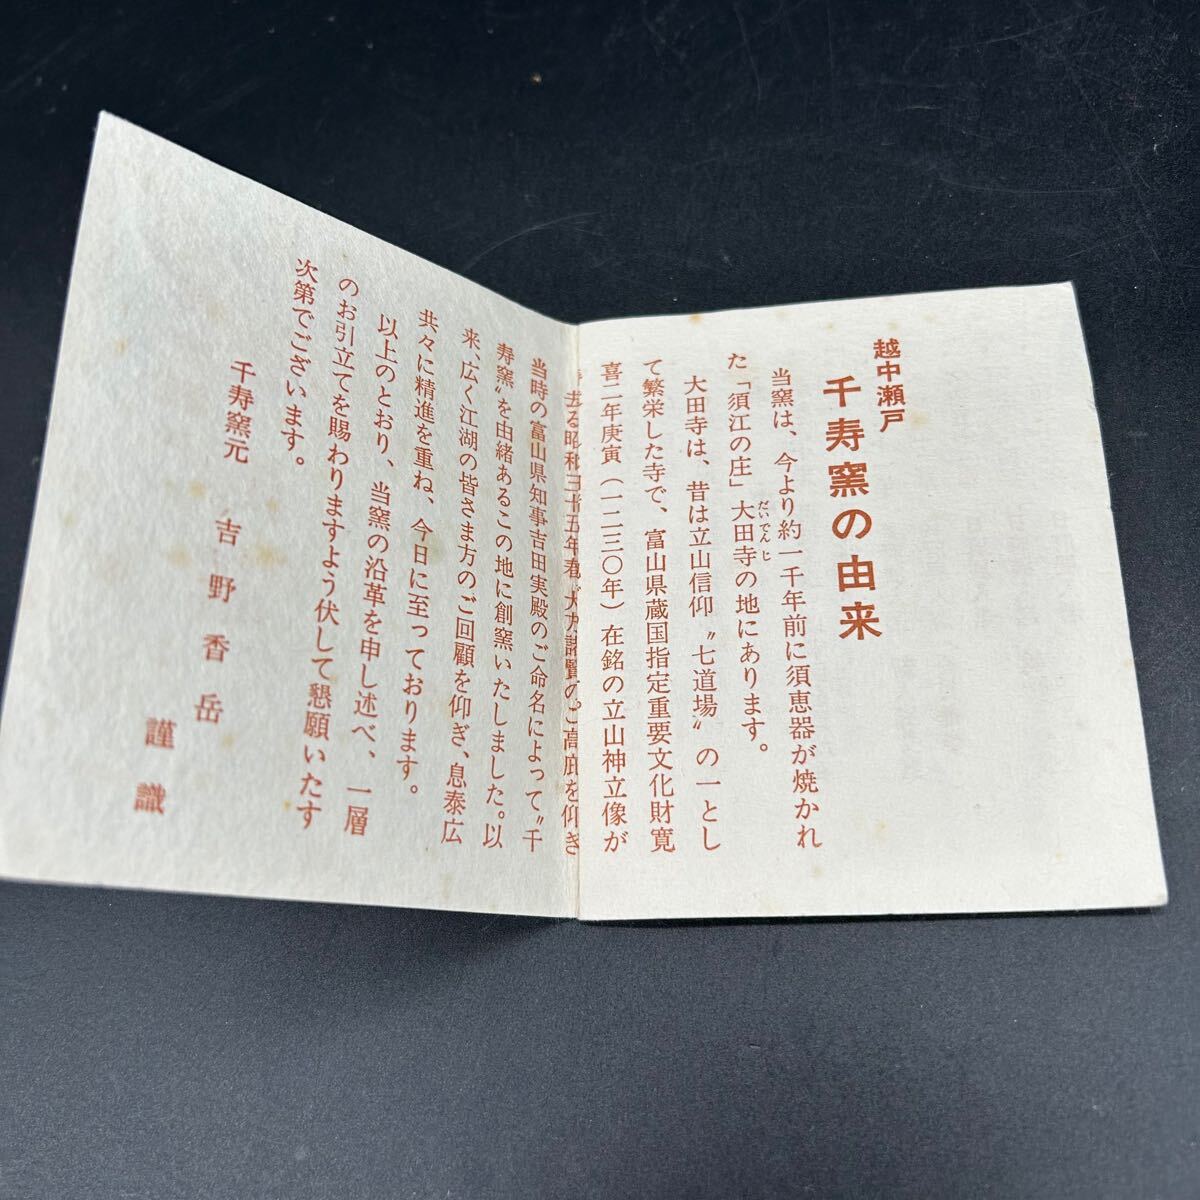 越中瀬戸
千寿窯の由来
当窯は、今より約一千年前に須恵器が焼かれ
た「須江の庄」大田寺の地にあります。
だいでんじ
大田寺は、昔は立山信仰〝七道場〟の一とし
て繁栄した寺で、富山県蔵国指定重要文化財寛
喜二年庚寅(一二三〇年)在銘の立山神立像が
去る昭和三十五年春、大方諸賢のご高庇を仰ぎ
当時の富山県知事吉田実殿のご命名によって〝千
寿窯〟を由緒あるこの地に創窯いたしました。以
来、広く江湖の皆さま方のご回顧を仰ぎ、息泰広
共々に精進を重ね、今日に至っております。
以上のとおり、当窯の沿革を申し述べ、一層
のお引立てを賜わりますよう伏して懇願いたす
次第でございます。
千寿窯元 吉野香岳
謹識